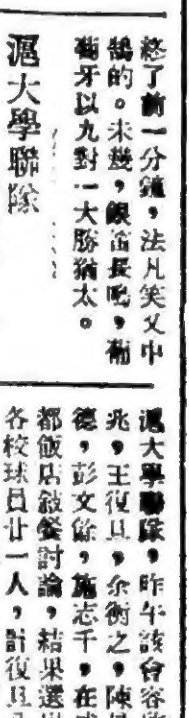 終了前一分鐘，法凡笑又中
鵠的。未幾，銀笛長鳴，葡
萄牙以九對一大勝猶太。
滬大學聯隊
滬大學聯隊，昨午該會容
兆，王復旦，余衡之，陳
德，彭文餘，施志千，在
都飯店敍餐討論，結果選
各校球員廿一人，計復旦